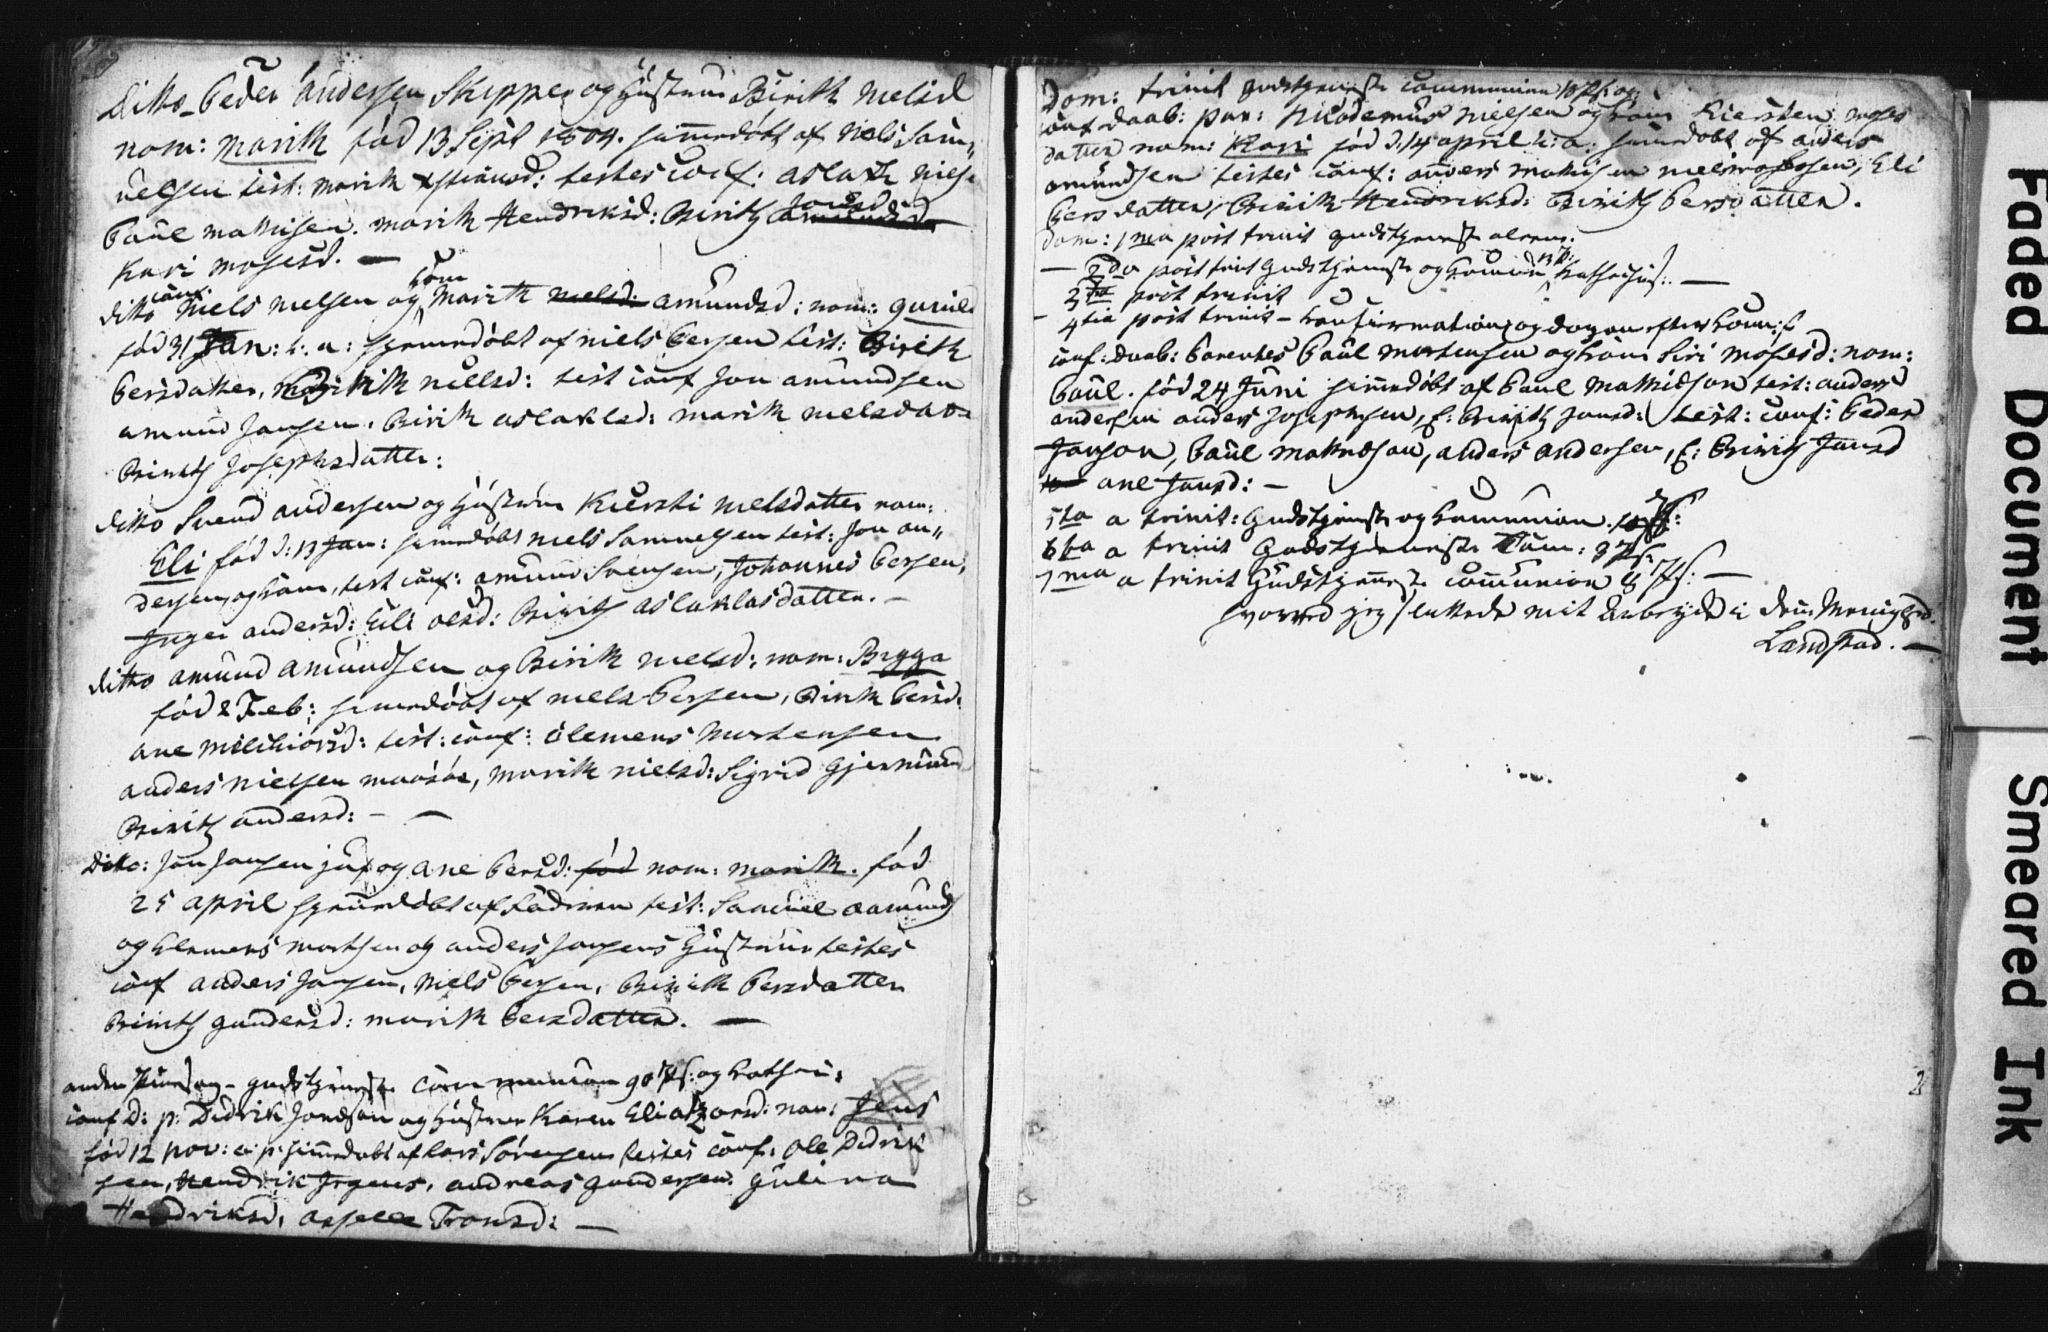 Ditto Peder Andersen Skipper og Hustrue Birith Nielsd
nom: Marith fød 13 Sept 1804. hiemedøbt af Niels Sam„
uelsen test: Marith test: conf: Aslach Niels
Paul Mathisen. Marith Hendriksd: Birith Jonsd Amundsd
Kari Mosesd. —
Ditto conf: Niels Nielsen og Kone Marith Nielsd: Amundsd: nom: Gunild
fød 31 Jan: h: a: hjemedøbt af Niels Persen test: Birith
Persdatter, Marith Nielsd: test conf Jon Amundsen
Amund Jonsen. Birith Aslaksd: Marith Nielsdat
Birith Josephsdatter:
Ditto Svend Andersen og Hustrue Kiersti Nielsdatter nom:
Eli fød d: 13 Jan: hiemedøbt Niels Samuelsen test: Jon An„
dersen og Kone, test conf: Amund Svensen, Johannes Persen,
Inger Andersd: Eli Olsd: Birith Aslaklasdatter. —
Ditto Amund Amundsen og Birith Nielsd: nom: Brygga
fød 2 Feb: hiemedøbt af Niels Persen, Birith Persd:
Ane Melchiorsd: test: conf: Clemens Mortensen
Anders Nielsen Maasøe, Marith Nielsd: Sigrid Gjermund
Birith Andersd: — —
Ditto: Jon Jonsen og Ane Persd: fød nom: Marith. fød
25 April hjemedøbt af Faderen test: Samuel Aamunds
og Clemens Mortsen og Anders Jonsens Hustrue testes
conf Anders Jonsen, Niels Persen, Birith Persdatter
Birith Gundersd: Marith Persdatter. —
anden Pinsedag — gudstjeneste Communion 90 Ps: og
conf D: p: Didrik Jondson og Hustrue Karen Eliasd: nom: Jens
fød 12 Nov: a: p: hiemedøbt af Lars Sørensen testes conf: Ole Didrik
sen, Hendrik Jrgens, Andreas Gundersen. Gulina
Hendriksd: Tronsd: —
Dom: Trinit gudstjeneste Communion 10 Ps: og
conf Daab: Par: Nicodemus Nielsen og Kone Kiersten Moses
datter nom: Kari fød d. 14 April h: a: hiemdøbt af Anders
Amundsen testes conf: Anders Mathisen Eli
Persdatter, Birith Hendriksd: Birith Persdatter.
Dom: 1ma post trinit gudstjeneste allene.
— 2da post trinit Gudstjeneste og —
— 3tia post trinit
— 4tia post trinit — Confirmation og dagen efter
conf: Daab: Parentes Paul Mortensen og Kone Siri Mosesd: nom:
Paul. fød 24 Juni hiemedøbt af Paul Mathidson test: Anders
Andersen Anders Josephsen, Birith Jonsd: test: conf: Peder
Jonson, Paul Mathidson, Anders Andersen, Birith Jonsd
Ane Jonsd: —
5ta a trinit: Gudstjeneste og Communion.
6ta a trinit Gudstjeneste Com: 8 Ps:
7ma a trinit Gudstjeneste Communion 8 Ps: —
hvorved jeg sluttede mit Arbeyde i den Menighed.
Landstad. —
Faded Document
Smeared Ink